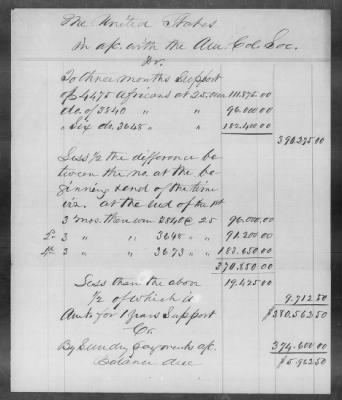 The United States
in a/c. with the Am. Col. Soc.
Dr.
To three months support
of 4475 Africans at 25. 111.875.00
do. of 3840 " " 96.000.00
" Six do. 3648 " " 182.400.00
390.275.00
Less 1/2 the difference be-
tween the no. at the be-
ginning & end of the time
viz. at the end of the 1st
3 mos. there were 3840 @ 25 96.000.00
2d 3 " " 3648 " " 91.200.00
4th 3 " " 3673 " " 183.650.00
370.850.00
Less than the above 19.425.00
1/2 of which is 9.712.50
Amt. for 1 years support $380.562.50
Cr.
By Sundry payments a/c. 374.600.00
Balance due $5.962.50